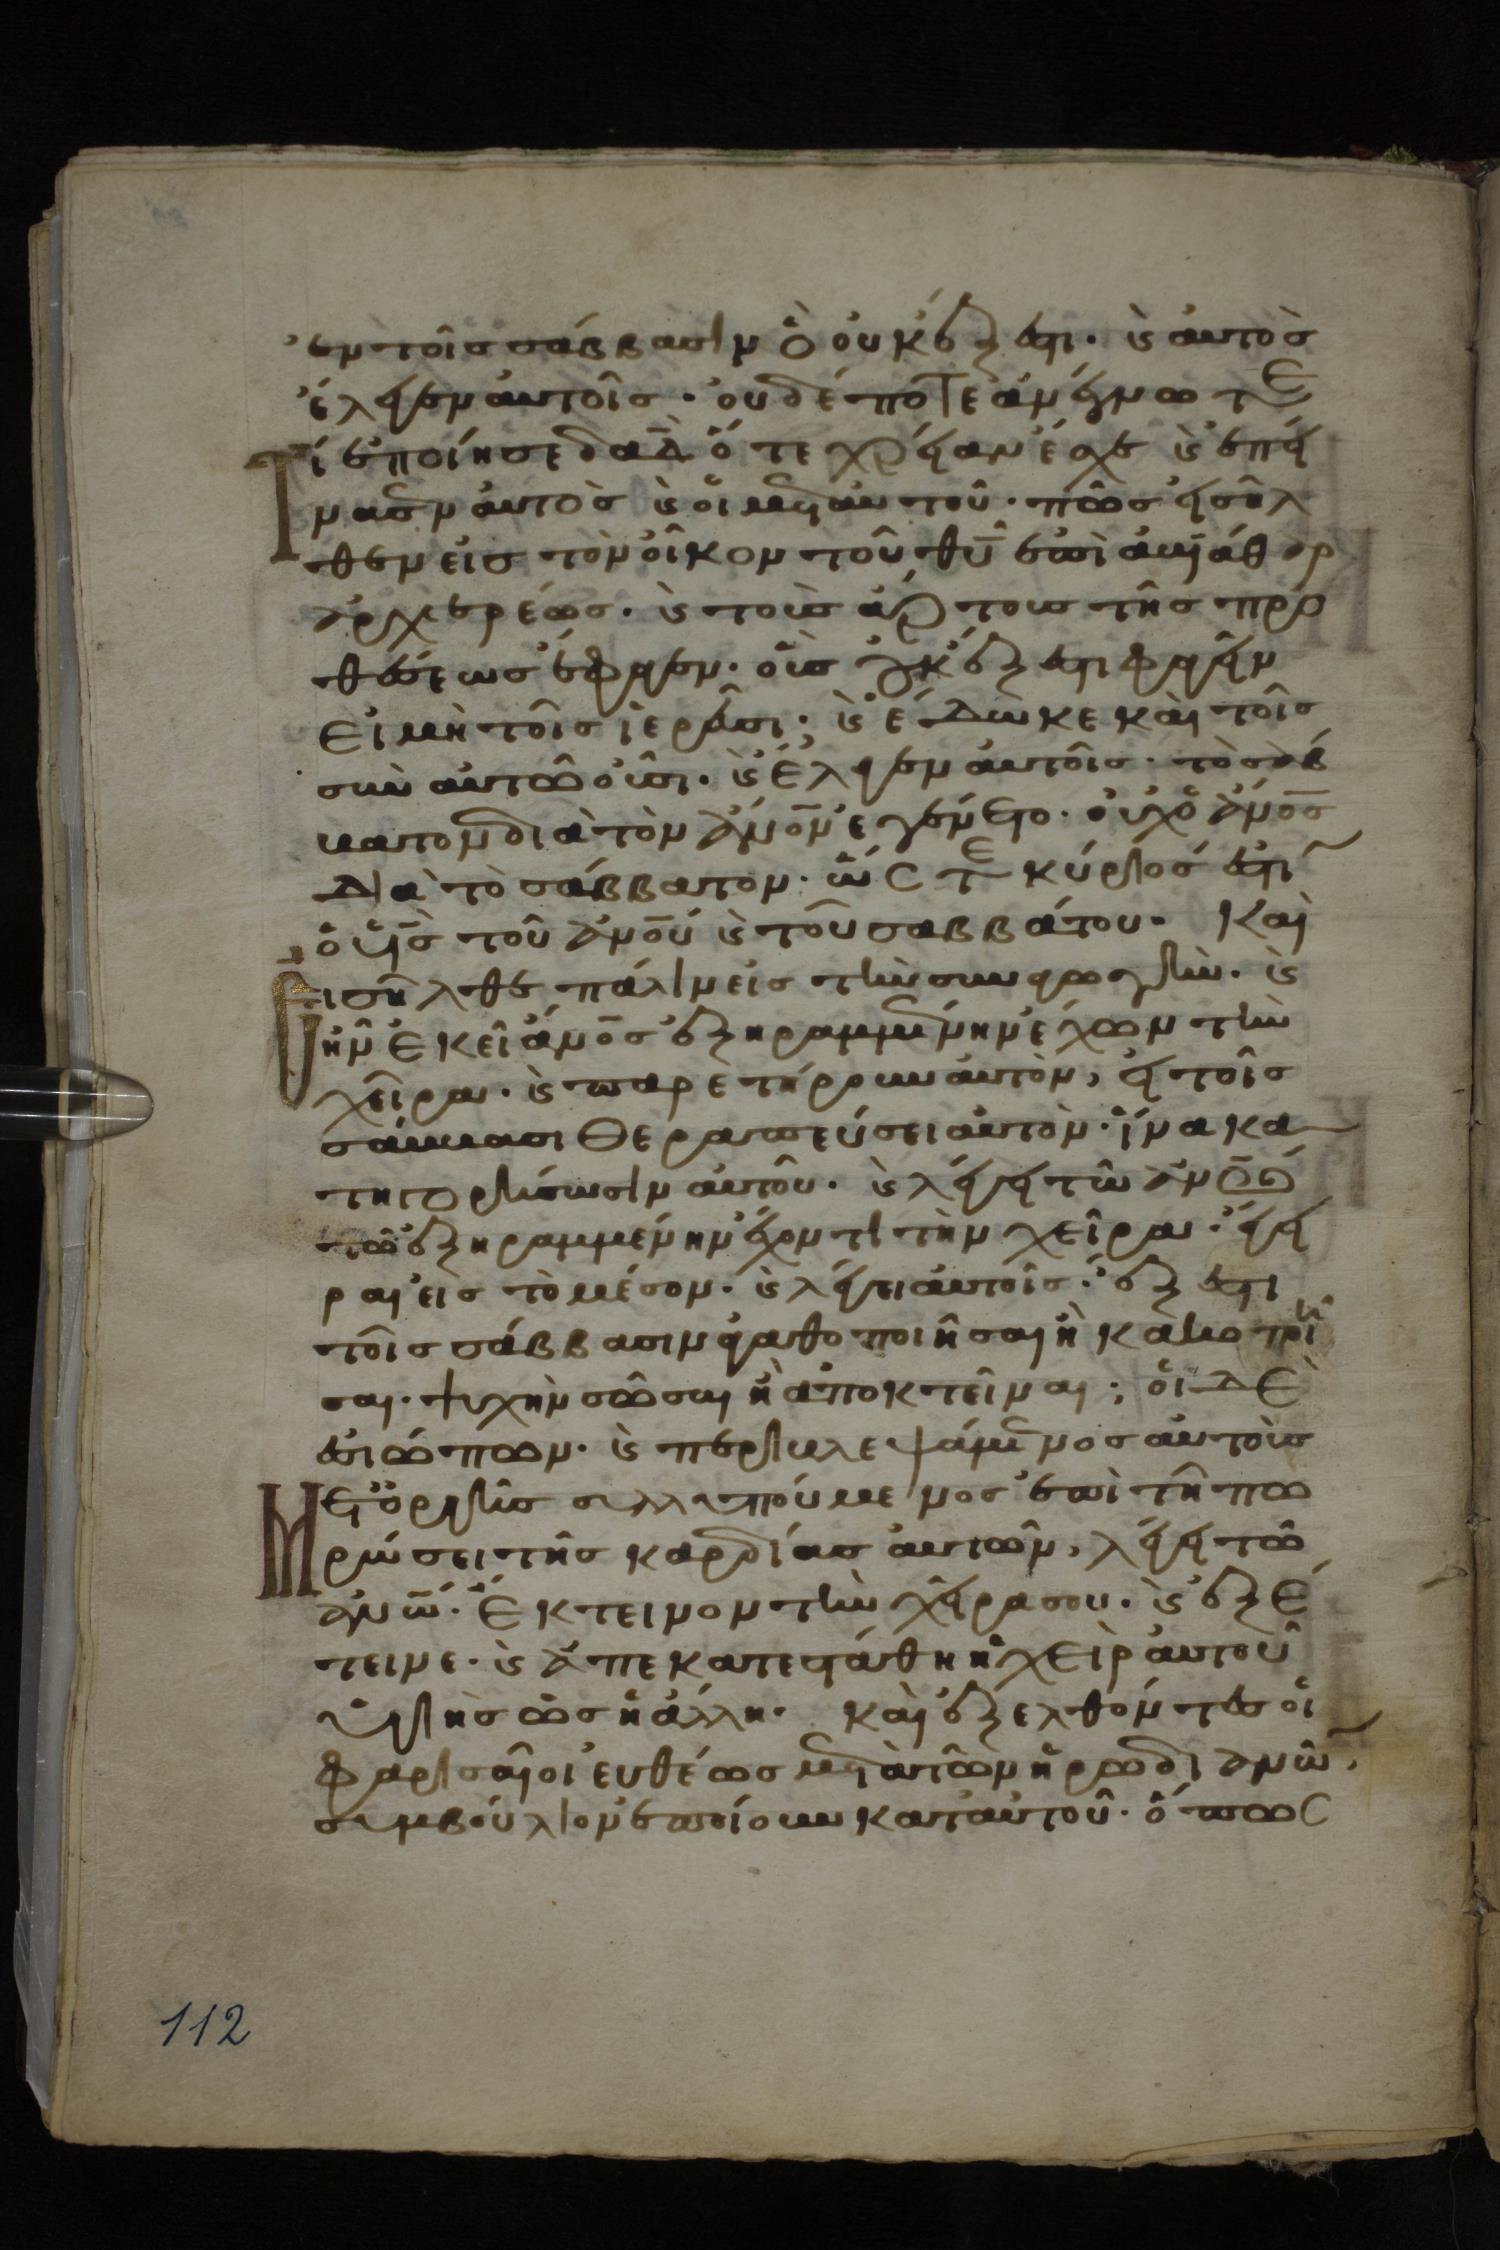 ἐν τοῖς σάββασιν ὃ οὐκ ἔξεστι. καὶ αὐτὸς
ἔλεγεν αὐτοῖς. οὐδέποτε ἀνέγνωτε
τί ἐποίησε δαδ ὅτε χρείαν ἔσχε καὶ ἐπεί
νασεν αὐτὸς καὶ οἱ μετ αὐτοῦ. πῶς εἰσῆλ
θεν εἰς τὸν οἶκον τοῦ θυ ἐπὶ ἀβιάθαρ
ἀρχιερέως. καὶ τοὺς ἄρτους τῆς προ
θέσεως ἔφαγεν. οὓς οὐκ ἔξεστι φαγεῖν
εἰ μὴ τοῖς ἱερεῦσι; καὶ ἔδωκε καὶ τοῖς
σὺν αὐτῶ οὖσι. καὶ ἔλεγεν αὐτοῖς. τὸ σάβ
βατον διὰ τὸν ἄνον ἐγένετο. οὐχ ὁ ἄνος
διὰ τὸ σάββατον. ὥστε κύριός ἐστι
ὁ υἱὸς τοῦ ἀνου καὶ τοῦ σαββάτου. Καὶ
εἰσῆλθε πάλιν εἰς τὴν συναγωγὴν. καὶ
ἦν ἐκεῖ ἄνος ἐξηραμμένην ἔχων τὴν
χεῖρα. καὶ παρετήρουν αὐτὸν, εἰ τοῖς
σάββασι θεραπεύσει αὐτὸν. ἵνα κα
τηγορήσωσιν αὐτοῦ. καὶ λέγει τῶ ἀνω
τῶ ἐξηραμμένην ἔχοντι τὴν χεῖρα. ἔγει
ραι εἰς τὸ μέσον. καὶ λέγει αὐτοῖς. ἔξεστι
τοῖς σάββασιν ἀγαθοποιῆσαι ἢ κακοποιῆ
σαι. ψυχὴν σῶσαι ἢ ἀποκτεῖναι; οἱ δὲ
ἐσιώπων. καὶ περιβλεψάμενος αὐτοὺς
μετ ὀργῆς συλλυπούμενος ἐπὶ τῆ πω
ρώσει τῆς καρδίας αὐτῶν, λέγει τῶ
ἀνω. ἔκτεινον τὴν χεῖρα σου. καὶ ἐξέ
τεινε. καὶ ἀπεκατεστάθη ἡ χεὶρ αὐτοῦ
ὑγιὴς ὡς ἡ ἄλλη. Καὶ ἐξελθόντες οἱ
φαρισαῖοι εὐθέως μετὰ τῶν ἡρωδιανῶν,
συμβούλιον ἐποίουν κατ αὐτοῦ. ὅπως
112